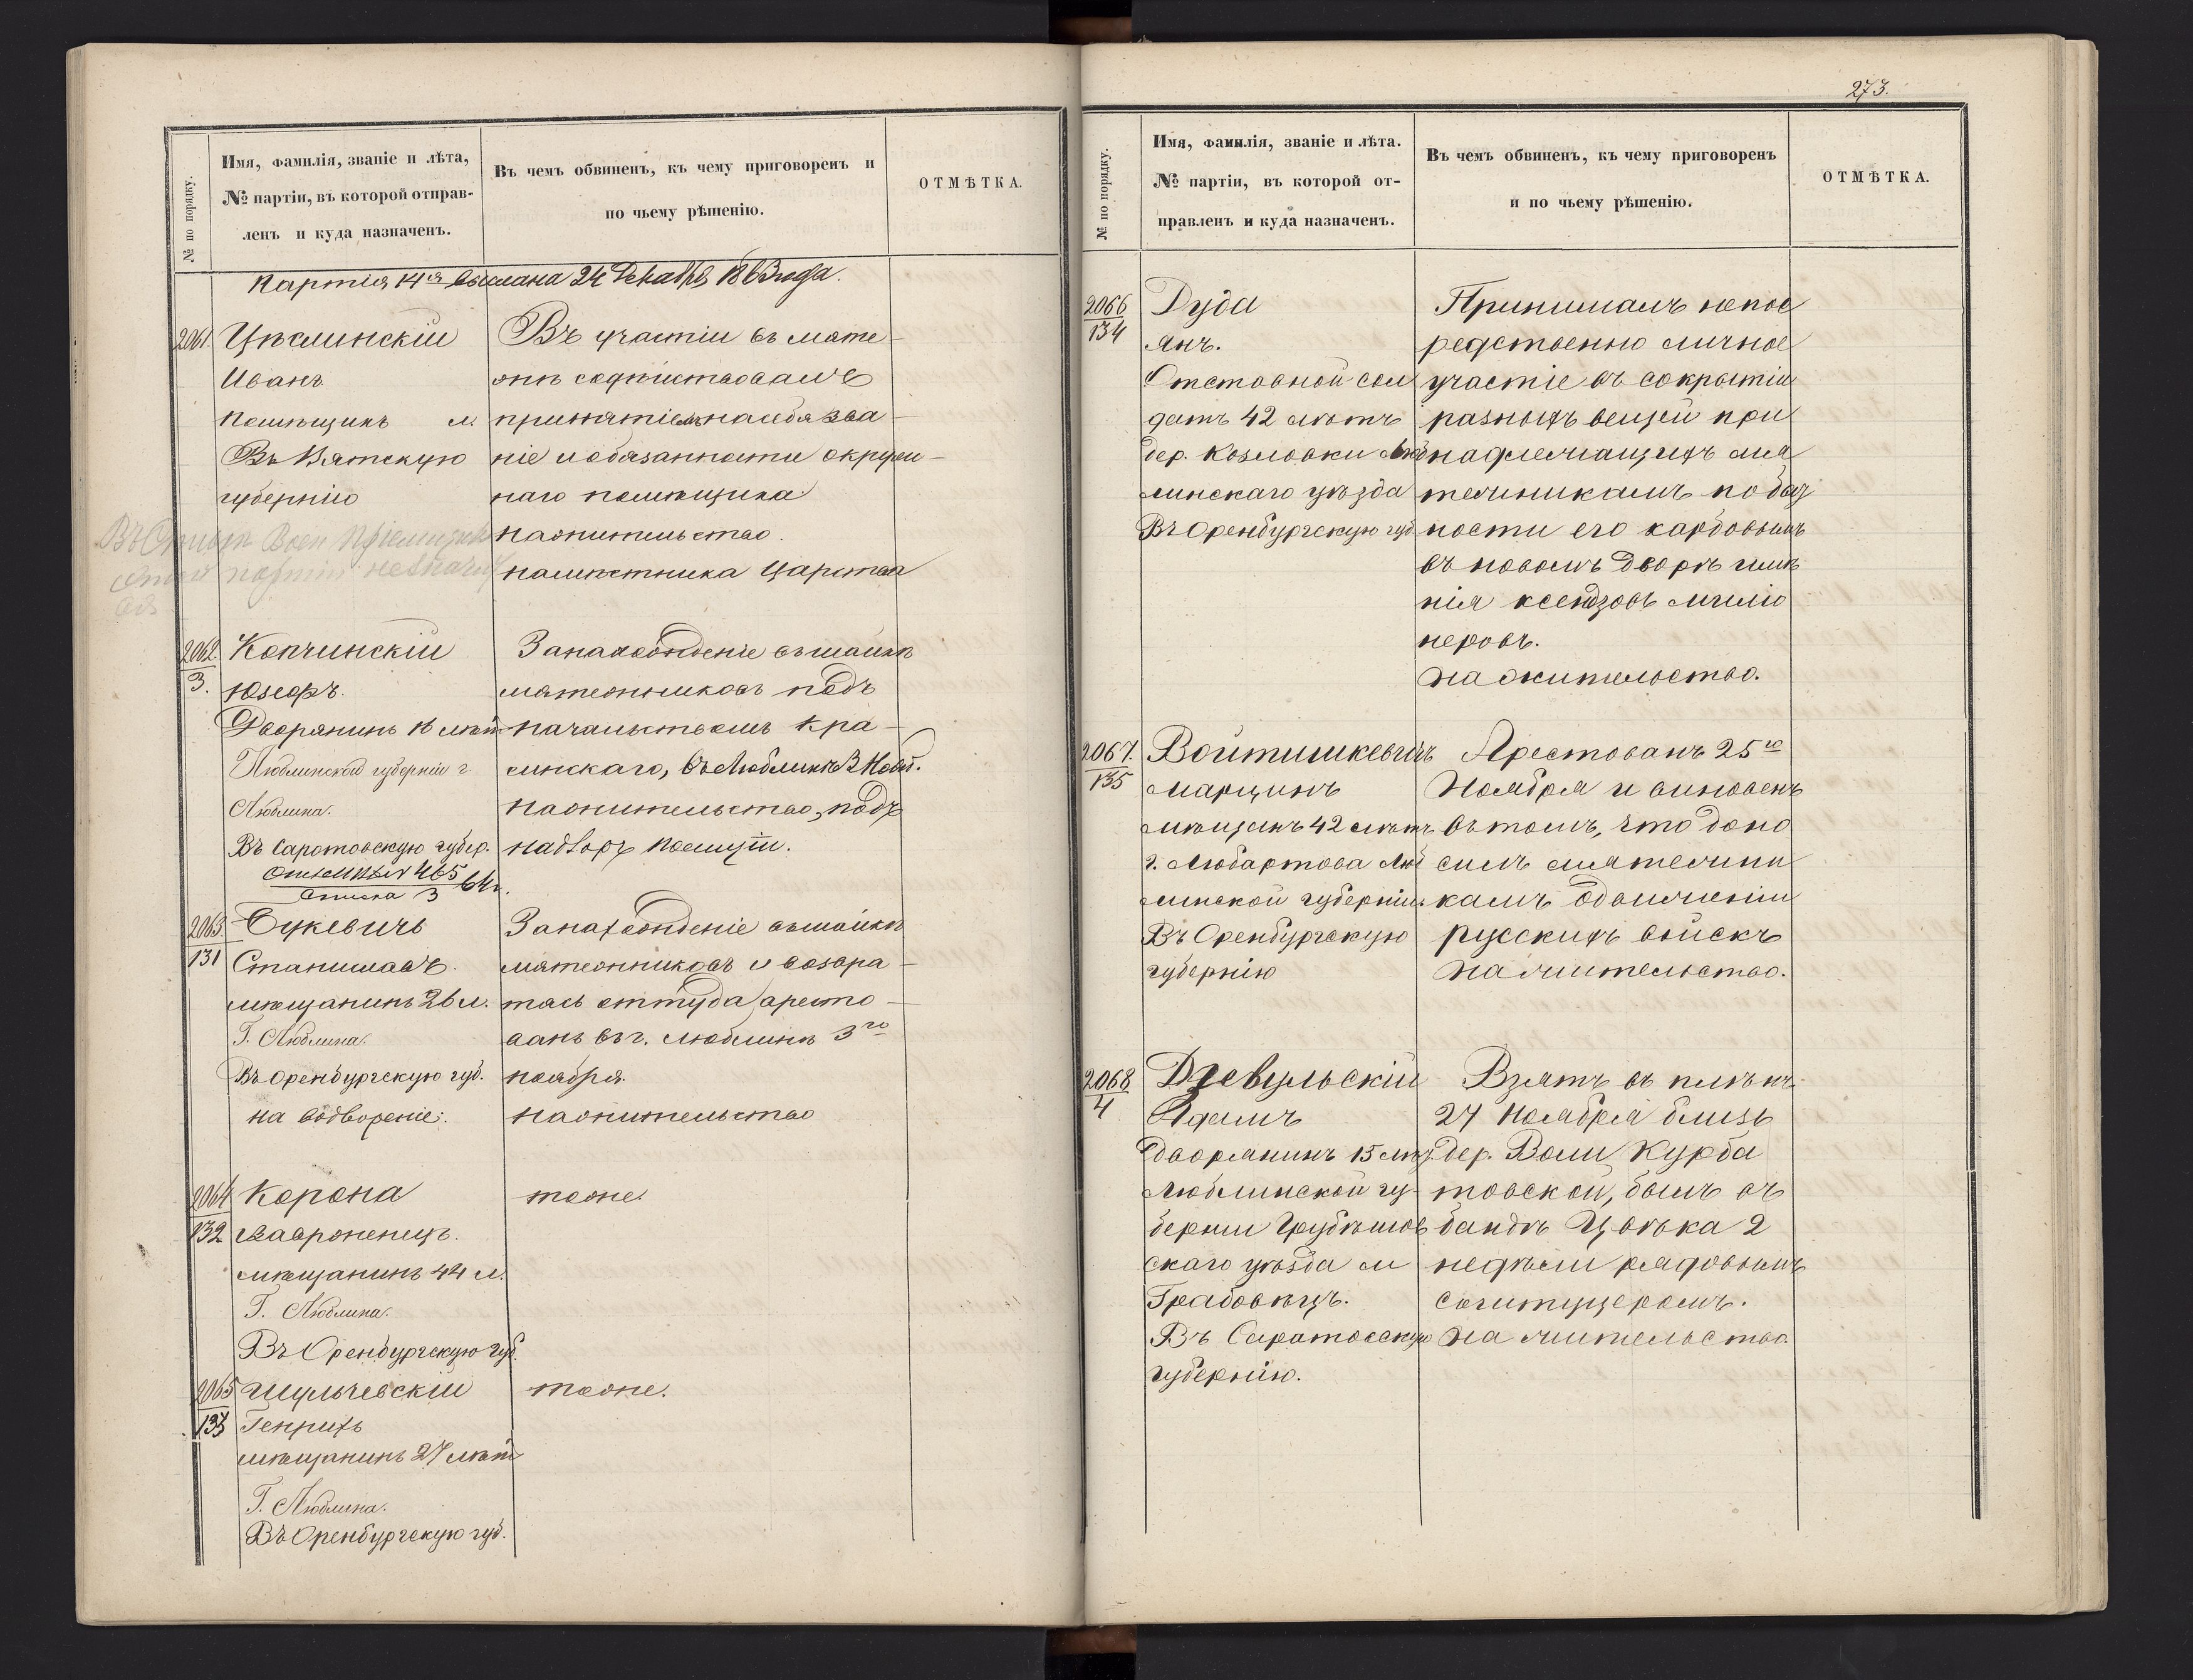 № по порядку.
Имя, фамилія, званіе и лѣта,
№ партіи, въ которой отправ-
ленъ и куда назначенъ.
Въ чемъ обвиненъ, къ чему приговоренъ и
по чьему рѣшенію.
ОТМѢТКА.
Партія 14я выслана 24 Декабря 1863 года.
2061.
Цѣслинскій
Иванъ
помѣщикъ л.
Въ Вятскую
губернію
Въ участіи въ мяте-
жѣ содѣйствовалъ
принятіемъ на себя зва-
ніе и обязанности окруж-
наго помѣщика
на жительство.
намѣстника Царства
2062.
3.
Копчинскій
Юзефъ.
Дворянинъ 16 лѣтъ
Люблинской губерніи г.
Люблина.
Въ Саратовскую губер.
465
3
64 г.
За нахожденіе въ шайкѣ
мятежниковъ подъ
начальствомъ Кра-
синскаго, въ Люблинѣ 3 Нояб.
на жительство, подъ
надзоръ полиціи.
2063.
131
Сукевичъ
Станиславъ.
мѣщанинъ 26 л.
Г. Люблина.
Въ Оренбургскую губ.
на водвореніе.
За нахожденіе въ шайкѣ
мятежниковъ и возвра-
тясь оттуда аресто-
ванъ въ г. Люблинѣ 3го
ноября.
на жительство
2064
132
Корона
Вавроненецъ.
мѣщанинъ 44 л.
Г. Люблина.
Въ Оренбургскую губ.
тоже
2065
133
Шульчевскій
Генрихъ
мѣщанинъ 27 лѣтъ
Г. Люблина.
Въ Оренбургскую губ.
тоже.
273.
№ по порядку.
Имя, фамилія, званіе и лѣта.
№ партіи, въ которой от-
правленъ и куда назначенъ.
Въ чемъ обвиненъ, къ чему приговоренъ
и по чьему рѣшенію.
ОТМѢТКА.
2066
134
Дуда
Янъ.
Отставной сол
датъ 42 лѣтъ
дер. Козловки Люб
линскаго уѣзда
Въ Оренбургскую губ.
Принималъ непос
редственно личное
участіе въ сокрытіи
разныхъ вещей при
надлежащихъ мя
тежникамъ по быт
ности его карбовымъ
въ новомъ дворѣ имѣ
нія ксендзовъ мисіо
неровъ.
на жительство.
2067.
135
Войтишкевичъ
Марцинъ
мѣщанъ 42 лѣтъ
г. Любартова Люб
линской губерніи.
Въ Оренбургскую
губернію
Арестованъ 25го
Ноября и виновенъ
въ томъ, что доно
силъ мятежни
камъ о движеніи
русскихъ войскъ
на жительство.
2068
4
Древульскій
Адамъ
дворянинъ 15 лѣтъ.
Люблинской гу-
берніи Грубѣшов
скаго уѣзда м
Грабовѣцъ.
Въ Саратовскую
губернію.
Взятъ въ плѣнъ
27 Ноября близь
дер. Воли Курба
товской, былъ въ
бандѣ Цвѣка 2
недѣли рядовымъ
на жительство.